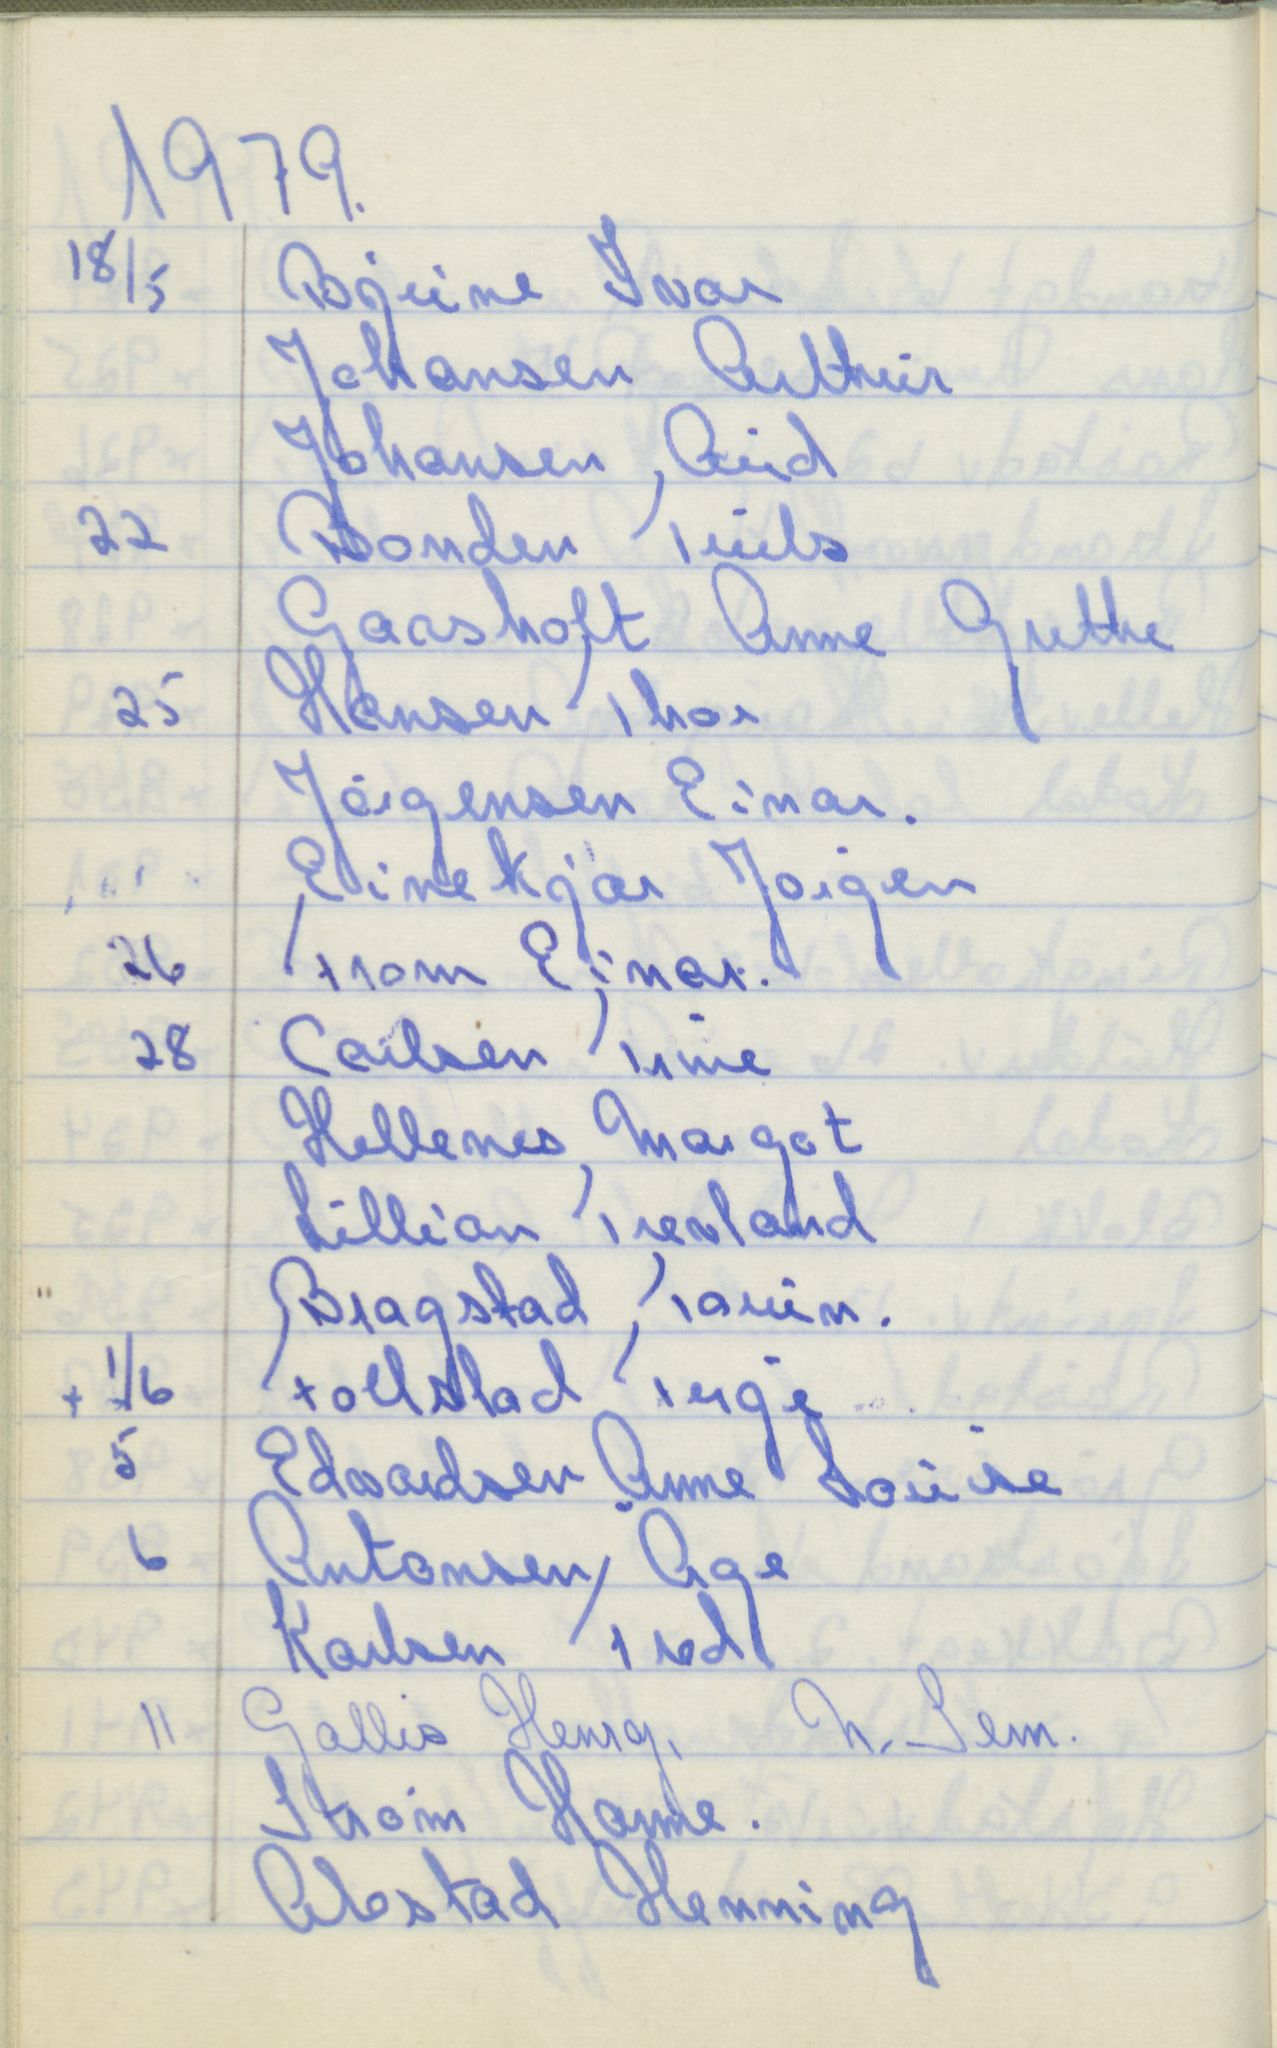 1979.
18/5 Bjerine Ivar
Johansen Arthur
Johansen Aud
22 Bonden Truls
Gaashoft Anne Grethe
25 Hansen Thor
Jörgensen Einar.
Einekjær Jørgen
26 From Einar.
28 Carlsen Trine
Hellenes Margot
Lillian Trevland
Bragstad Karin.
+ 1/6 Tollstad Terje
5 Edvardsen Anne Louise
6 Antonsen Åge
Karlsen Fred
11 Gallis Henry, N. Sem.
Strøm Hanne.
Abostad Henning